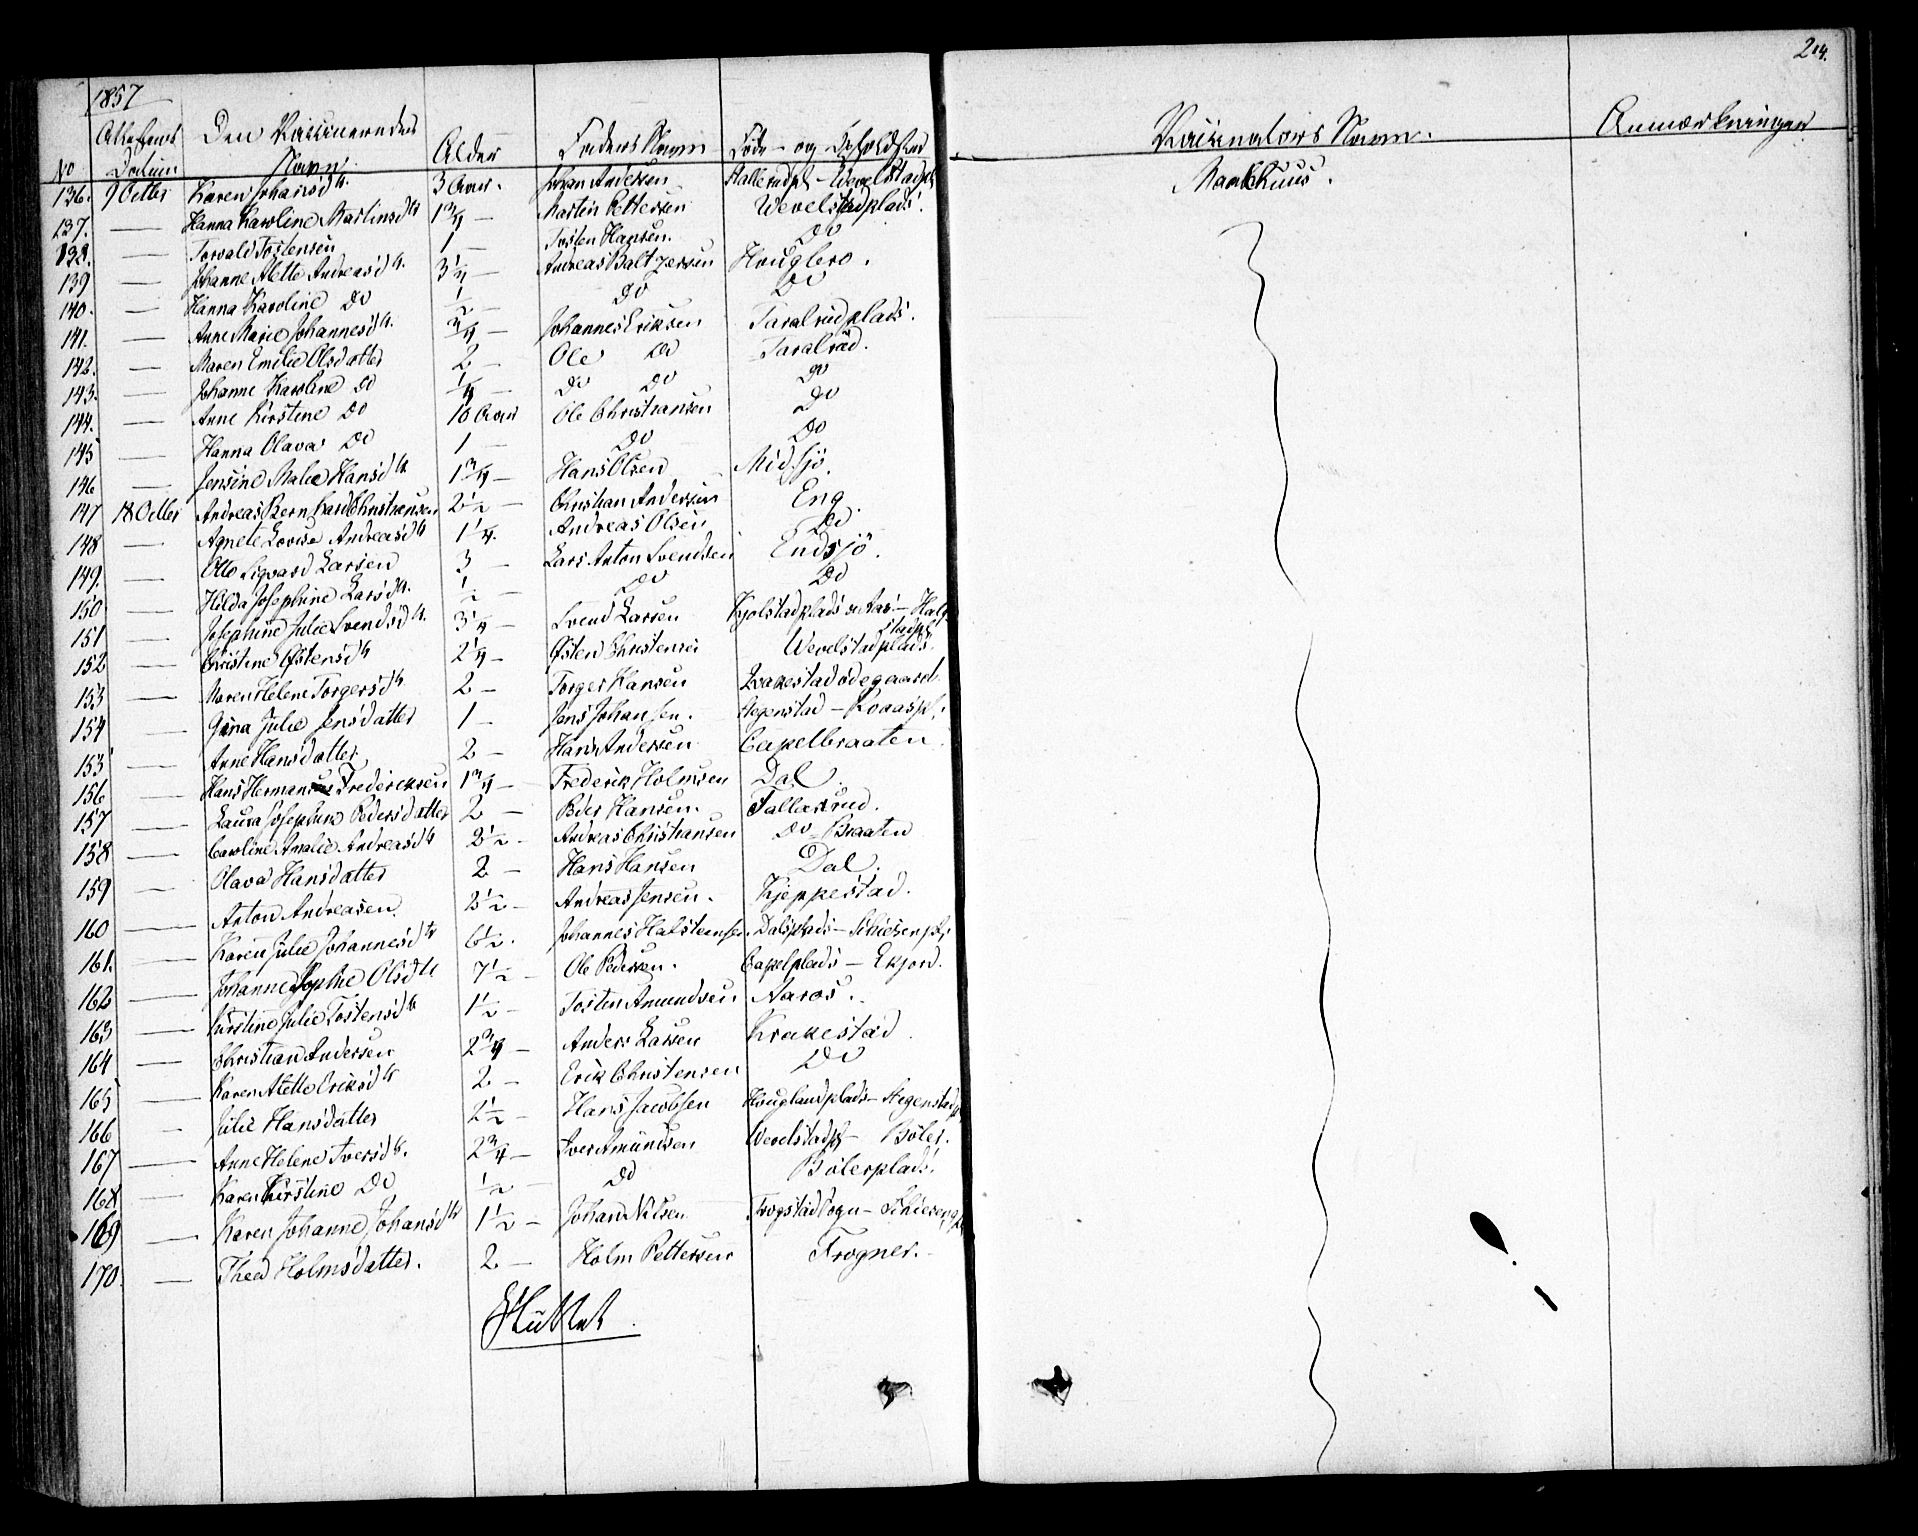 214.
1857
No Attestens Datum Den Vaccineredes Navn. Alder Faders Navn Føde- og Opholdsted Vaccinators Navn. Anmærkninger
136. 9 Octbr Karen Johansd tr. 3 Aar. Johan Andersen Wevelstadpl Maakhuus.
137. — Hanna Karoline Martinsd tr 1 3/4 — Martin Pettersen Wevelstadplads.
138. — Torvald Tostensen 1 — Tosten Hansen. Do
139 — Johanne Alette Andreasd tr. 3 1/4 — Andreas Baltzersen Houglero.
140. — Hanna Karoline Do 1/2 — Do Do
141. — Anne Marie Johannesd tr. 3/4 — Johannes Eriksen Taralrudplads.
142. — Maren Emilie Olsdatter 2 — Ole Do Taralrud.
143. — Johanne Karoline Do 1/4 — Do Do Do
144. — Anne Kirstine Do 10 Aar Ole Christiansen Do
145 — Hanna Olava Do 1 — Do Do
146 — Jensine Malie Hansd tr 1 3/4 — Hans Olsen Midsjö.
147 18 Octbr Andreas Bernhard Christiansen 2 1/2 — Christian Andersen Eng.
148 — Agnete Lovise Andreasd tr 1 1/4. Andreas Olsen Do
149. — Otto Sigvard Larsen 3 — Lars Anton Svendsen Endsjö.
150 — Hilda Josephine Larsd tr. 1/2 — Do Do
151 — Josephine Julie Svendsd tr. 3 1/4 — Svend Larsen Kjolstadplads
152 — Christine Østensd tr 2 1/4 — Østen Christensen Wevelstadplads.
153 — Maren Helene Torgersd tr 2 — Torger Hansen Krakestadödegaard
154 — Gina Julie Jensdatter 1 — Jens Johansen. Hegenstad —
153 — Anne Hansdatter 2 — Hans Andersen Capelbraaten
156 — Hans Herman Fredericksen 1 3/4 — Frederik Holmsen Dal.
157 — Laura Josephine Pedersdatter 2 — Peder Hansen. Tallaksrud.
158 — Caroline Amalie Andreasd tr 2 1/2 — Andreas Christiansen Do - Braaten
159 — Olava Hansdatter 2 — Hans Hansen Dal.
160 — Anton Andreasen 2 1/2 — Andreas Jensen. Kjeppestad.
161. — Karen Julie Johannesd tr 6 1/2. Johannes Halstensen Dalsplads —
162 — Johanne Sophie Olsd tr 7 1/2 — Ole Pedersen. Capelplads — Ekjord.
163 — Kirstine Julie Tostensd tr 1 1/2 — Tosten Amundsen Aaros.
164 — Christian Andersen 2 3/4 — Anders Larsen Krakestad
165 — Karen Alette Eriksd tr 2 — Erik Christensen Do
166 — Julie Hansdatter 2 1/2 — Hans Jacobsen Houglandplads — Hegenstadpl
167 — Anne Helene Iversd tr. 2 3/4 — Iver Amundsen Wevelstadpl — Böler.
168 — Karen Kirstine Do 1/2 — Do Bölerplads.
169 — Karen Johanne Johansd tr 1 1/2 — Johan Nilsen Trogstad Sogn —
170. — Thea Holmsdatter. 2 — Holm Pettersen Frogner. —
Sluttet.